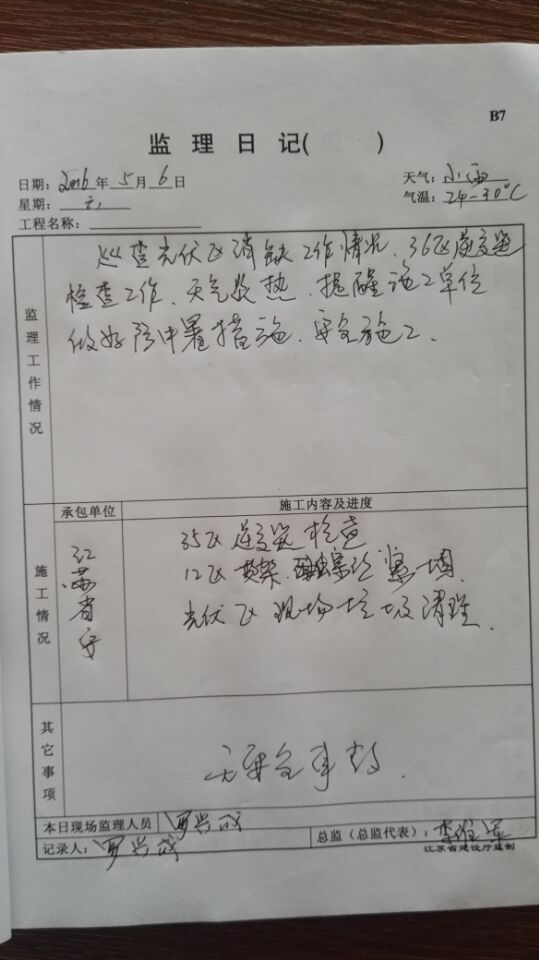 B7
监 理 日 记( )
日期: 2016 年 5 月 6 日
天气: 小雨
星期: 六
气温: 24-30℃
工程名称:
监理工作情况
巡查光伏区消缺工作情况. 36区逆变器
检查工作. 天气炎热. 提醒施工单位
做好防中暑措施. 安全施工.
承包单位
施工内容及进度
施工情况
江苏省
35区逆变器检查
12区
光伏区现场垃圾清理.
其它事项
无安全事故.
本日现场监理人员
罗兴成
记录人: 罗兴成
总监(总监代表):
江苏省建设厅监制